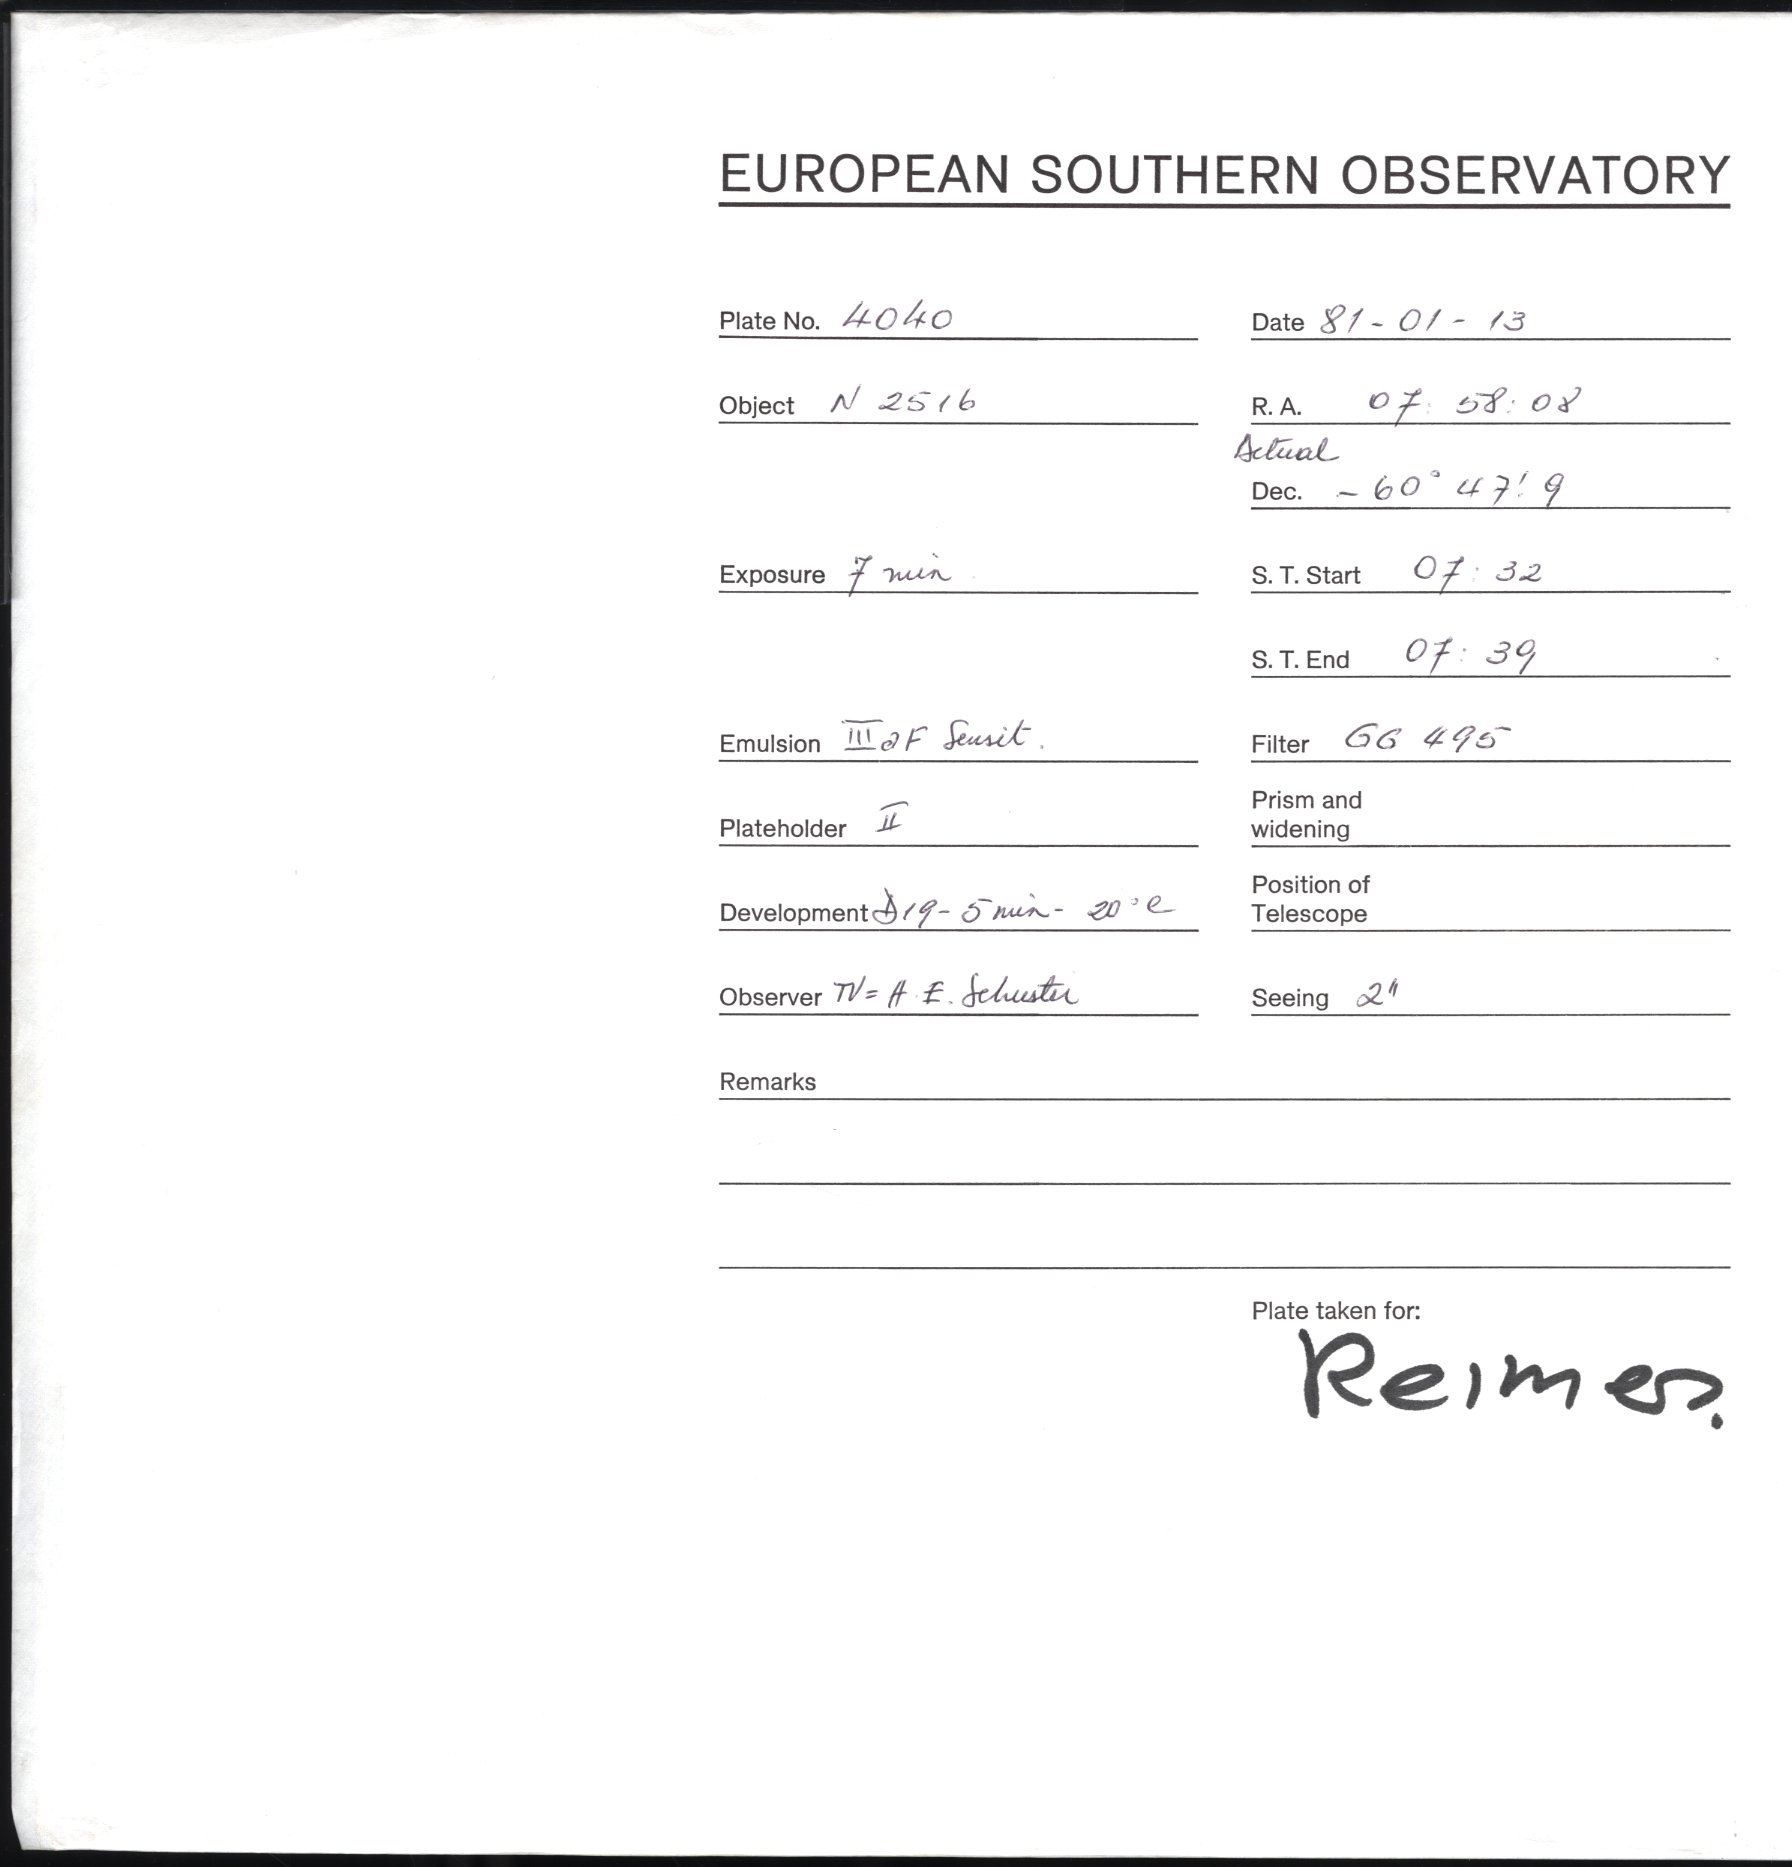 EUROPEAN SOUTHERN OBSERVATORY
Plate No. 4040
Date 81-01-13
Object N 2516
R. A. 07: 58: 08
Actual
Dec. - 60° 47'.9
Exposure 7 min
S. T. Start 07: 32
S. T. End 07: 39
Emulsion III aF Sensit.
Filter GG 495
Plateholder II
Prism and
widening
Development D19 - 5 min - 20°C
Position of
Telescope
Observer TV = A. E. Schuster
Seeing 2"
Remarks
Plate taken for:
Reimers.